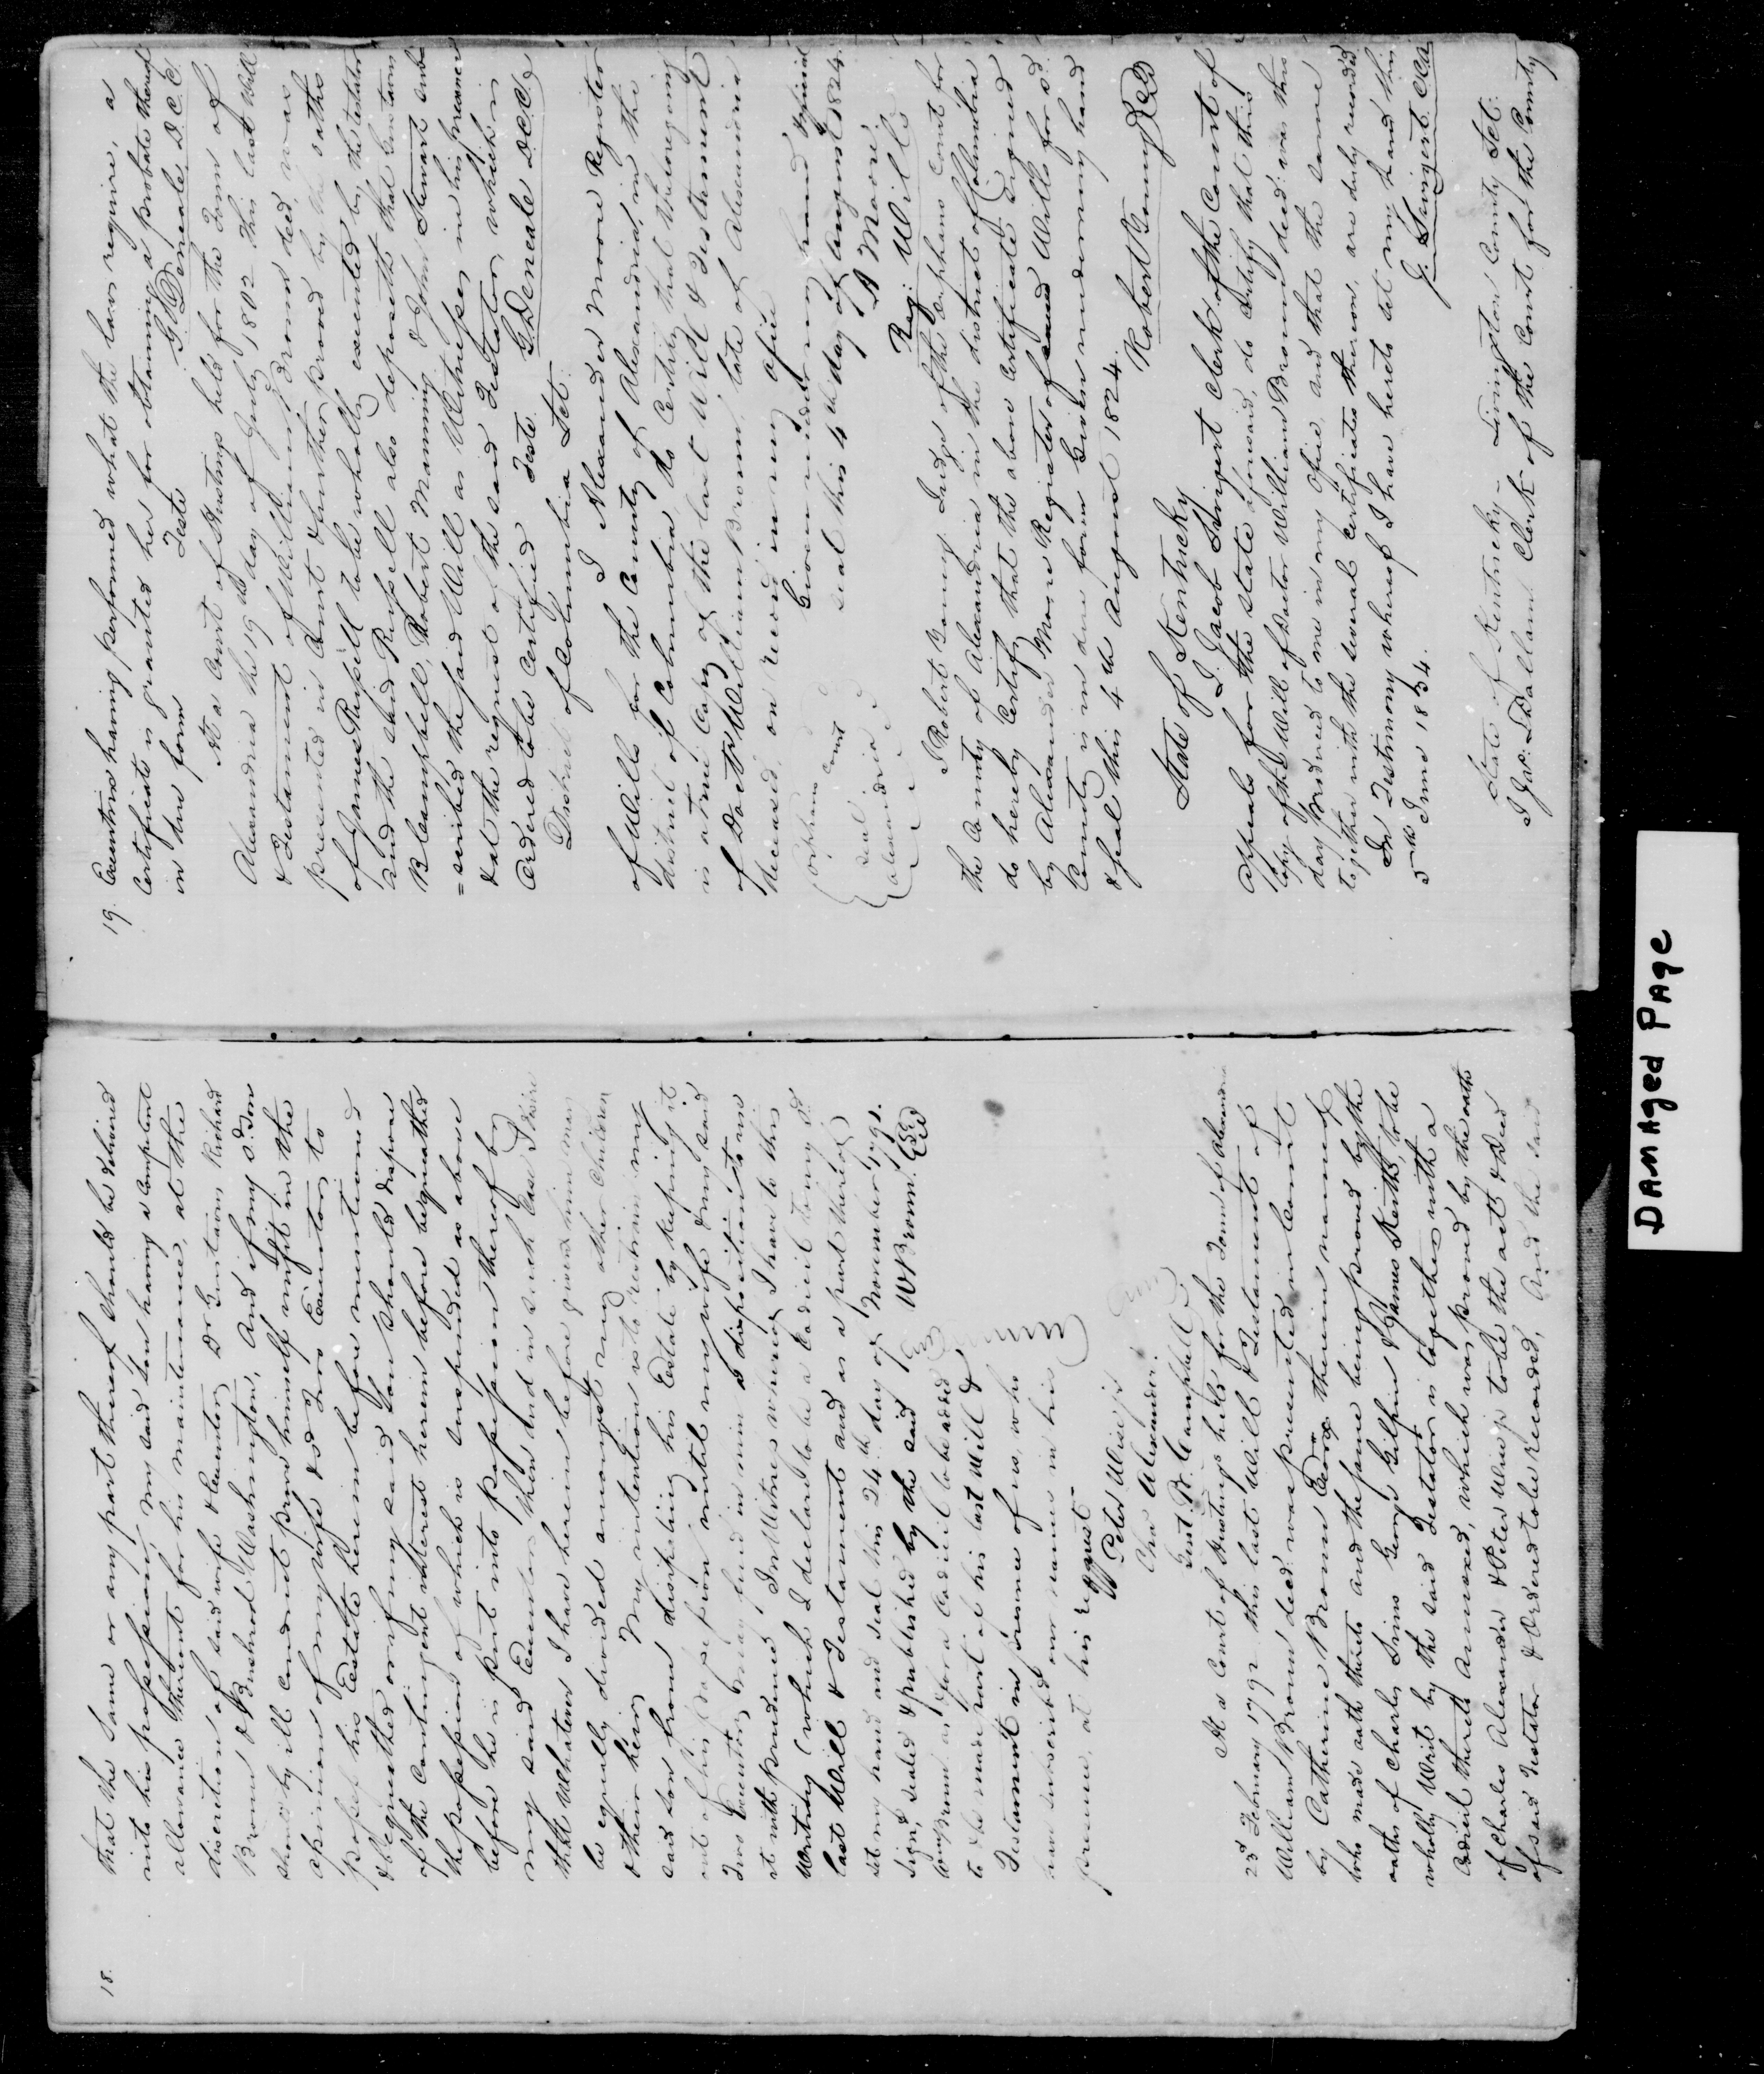 18.
that the Same or any part thereof should be delivered
into his possession, my said Son having a competent
allowance thereout for his maintenance, at the
discretion of said wife & Executors Dr Gustavus Richard
Brown & Bushrod Washington, And if my sd. Son
should by ill conduct prove himself unfit in the
opinion of my wife & sd Two Executors to
possess his Estate herein before mentioned
& bequeathed or if my said Son should dispose
of the Contingent interest herein before bequeathed
the possession of which is suspended as above
before he is put into possession thereof by
my said Executors then and in such Case I desire
that whatever I have herein before given him may
be equally divided amongst my other Children
& their heirs My intention is to restrain my
said son from dissipating his Estate by keeping it
out of his possession until my wife & my said
Two Executors may find in him a disposition to use
it with prudence In Witness whereof I have to this
Writing (which I declare to be a Codicil to my sd
last Will & Testament and as a part thereof)
set my hand and seal this 24th day of November 1791.
Sign'd sealed & published by the said W Brown Seal
Wm Brown as & for a Codicil to be added
to & be made part of his last Will &
Testament in presence of us, who
have subscribed our names in his
presence, at his request.
Peter Wise jr
Chs Alexander.
Geo. R. Campbell
At a Court of Hustings held for the Town of Alexandria
23d February 1792 this last Will & Testament of
William Brown deced. was presented in Court
by Catherine Brown Exorx therein named
who made oath thereto and the same being proved by the
oaths of Charles Simms George Gilpin & James Keith, to be
wholly Writ by the said Testator is together with a
Codicil thereto Annexed, which was proved by the oath
of Charles Alexander & Peter Wise jr to be the act & Deed
of said Testator & Ordered to be Recorded, And the said
19.
Executrix having performed what the laws require, a
Certificate is granted her for obtaining a probate thereof
in due form Teste G. Deneale D.C.C.
At a Court of Hustings held for the Town of
Alexandria the 19 day of July 1802 this last Will
& Testament of William Brown deced, was
presented in Court & further proved by the oaths
of James Russell to be wholly executed by the testator
and the said Russell also deposeth that Constam
Blampbell, Robert Manning & John Stewart sub
=scribed the said Will as Witnesses in his presence
& at the request of the said Testator, which is
Ordered to be Certified Teste G. Deneale D.C.C.
District of Columbia Set.
I Alexander Moore Register
of Wills for the County of Alexandria, in the
district of Columbia, do Certify that the foregoing
is a true Copy of the last Will & Testament
of Doctr William Brown, late of Alexandria
deceased, on record in my office
Given under my hand & official
seal this 4th day of August 1824.
A Moore
Reg: Wills
Orphans Court
Seal
Alexandria
I Robert Young Judge of the Orphans Court for
the County of Alexandria in the district of Columbia
do hereby Certify that the above Certificate Signed
by Alexander Moore Register of Wills for sd.
County is in due form Given under my hand
& seal this 4th August 1824.
Robert Young Seal
State of Kentucky
I. Jacob Swigert Clerk of the Court of
Appeals for the State aforesaid, do Certify that this
Copy of the Will of Doctor William Brown, deced: was this
day produced to me in my Office and that the same
together with the several Certificates thereon, are duly recorded
In Testimony whereof I have hereto set my hand this
5th June 1834.
J. Swigert CCA
State of Kentucky - Livingston County Set:
I Jas: L Dallam Clerk of the Court for the County
Damaged Page